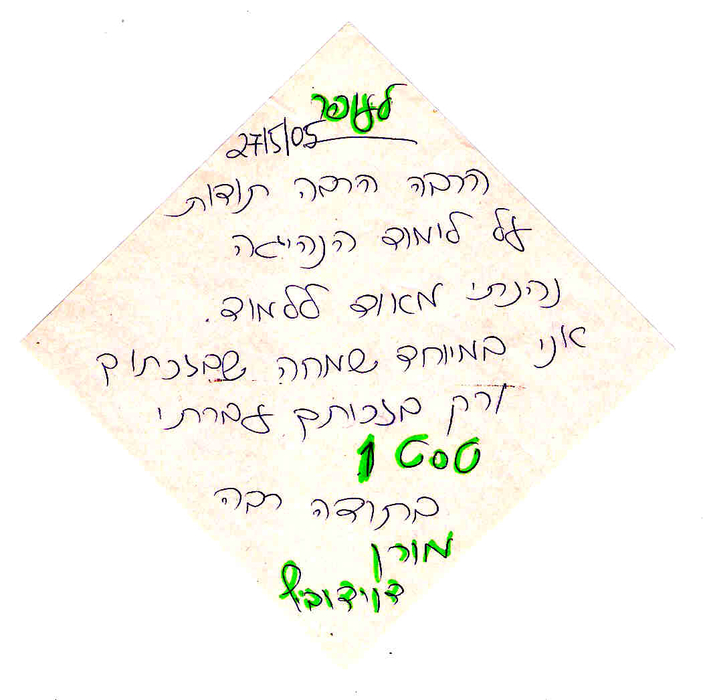 לעופר
27/5/05
הרבה הרבה תודות
על לימוד הנהיגה
נהנתי מאוד ללמוד.
אני במיוחד שמחה שבזכתוך
ורק בזכותך עברתי
טסט 1
בתודה רבה
מורן
דוידוביץ